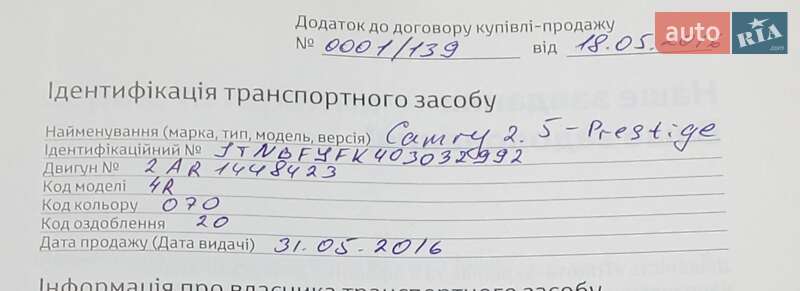 Додаток до договору купівлі-продажу
№ 0001/139 від 18.05.2016
auto RIA.com
Ідентифікація транспортного засобу
Найменування (марка, тип, модель, версія) Camry 2.5 - Prestige
Ідентифікаційний № JTNBFYFK403032992
Двигун № 2AR1448423
Код моделі 4R
Код кольору 070
Код оздоблення 20
Дата продажу (Дата видачі) 31.05.2016
Інформація про власника транспортного засобу